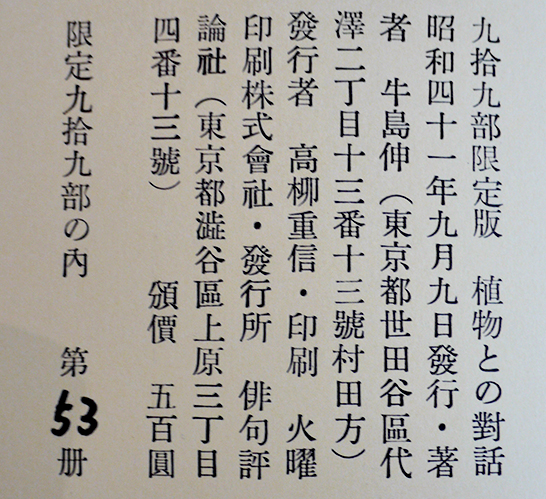 九拾九部限定版　植物との對話
昭和四十一年九月九日發行・著
者　牛島伸（東京都世田谷區代
澤二丁目十三番十三號村田方）
發行者　高柳重信・印刷　火曜
印刷株式會社・發行所　俳句評
論社（東京都澁谷區上原三丁目
四番十三號）　頒價　五百圓
限定九拾九部の內　第53册